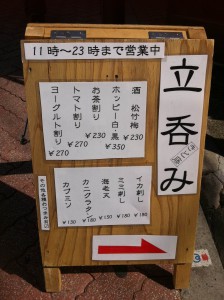 11時～23時まで営業中
立呑み
酒 松竹梅 ¥230
ホッピー白・黒 ¥350
お茶割り ¥230
トマト割り ¥270
ヨーグルト割り ¥270
イカ刺し ¥180
ミミ刺し ¥180
海老天 ¥180
カニグラタン ¥150
カブミソ ¥130